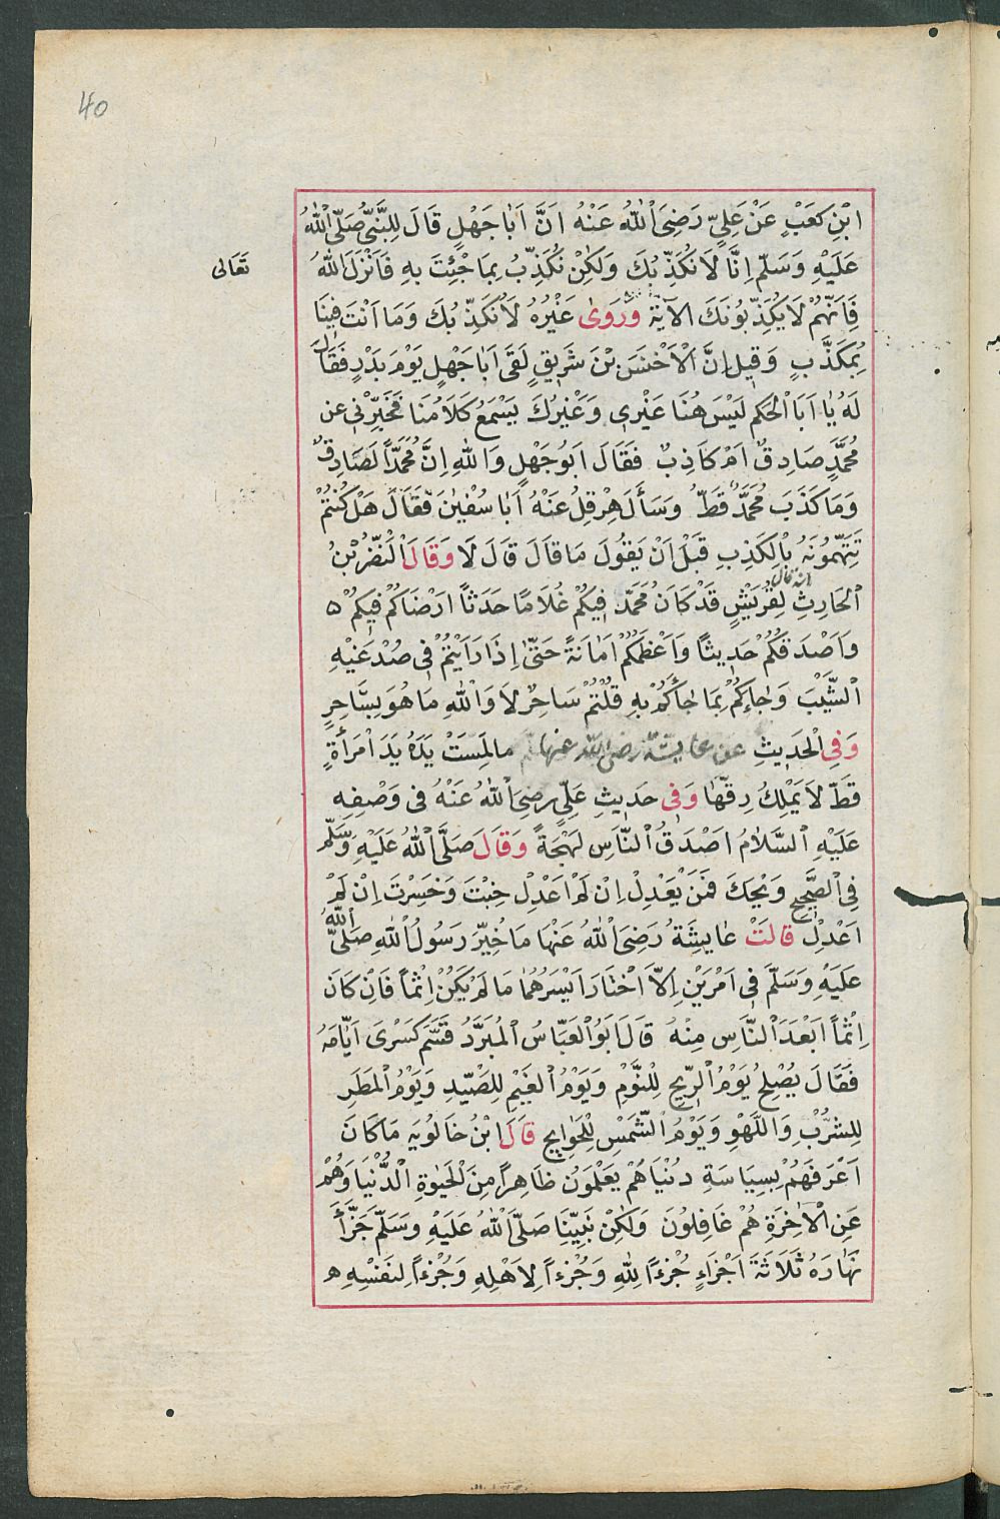 40
ابْنِ كَعْبٍ عَنْ عَلِيٍّ رَضِيَ اللهُ عَنْهُ اَنَّ اَبَا جَهْلٍ قَالَ لِلنَّبِيِّ صَلَّى اللهُ
عَلَيْهِ وَسَلَّمَ اِنَّا لَا نُكَذِّبُكَ وَلَكِنْ نُكَذِّبُ بِمَا جِئْتَ بِهِ فَاَنْزَلَ اللهُ
تَعَالى
فَاِنَّهُمْ لَا يُكَذِّبُونَكَ الْآيَةَ وَرَوَى غَيْرُهُ لَا نُكَذِّبُكَ وَمَا اَنْتَ فِينَا
بِمُكَذَّبٍ وَقِيلَ اِنَّ الْاَخْنَسَ بْنَ شَرِيقٍ لَقِىَ اَبَا جَهْلٍ يَوْمَ بَدْرٍ فَقَالَ
لَهُ يَا اَبَا الْحَكَمِ لَيْسَ هُنَا غَيْرِى وَغَيْرُكَ يَسْمَعُ كَلَامَنَا فَخَبِّرْنِى عن
مُحَمَّدٍ صَادِقٌ اَمْ كَاذِبٌ فَقَالَ اَبُو جَهْلٍ وَاللهِ اِنَّ مُحَمَّدًا لَصَادِقٌ
وَمَا كَذَبَ مُحَمَّدٌ قَطُّ وَسَأَلَ هِرَقْلُ عَنْهُ اَبَا سُفْيٰنَ فَقَالَ هَلْ كُنْتُمْ
تَتَّهِمُونَهُ بِالْكَذِبِ قَبْلَ اَنْ يَقُولَ مَا قَالَ قَالَ لَا وَقَالَ النَّضْرُ بْنُ
انه قال
الْحَارِثِ لِقُرَيْشٍ قَدْ كَانَ مُحَمَّدٌ فِيكُمْ غُلَامًا حَدَثًا اَرْضَاكُمْ فِيكُمْ ۵
وَاَصْدَقَكُمْ حَدِيثًا وَاَعْظَمَكُمْ اَمَانَةً حَتَّى اِذَا رَاَيْتُمْ فِى صُدْغَيْهِ
الشَّيْبَ وَجَاءَكُمْ بِمَا جَاءَكُمْ بِهِ قُلْتُمْ سَاحِرٌ لَا وَاللهِ مَا هُوَ بِسَاحِرٍ
وَفِى الْحَدِيثِ عن عايشة رضى الله عنها مالَمَسَتْ يَدُهُ يَدَ امْرَأَةٍ
قَطّ لَا يَمْلِكُ رِقَّهَا وَفِى حَدِيثِ عَلِىٍّ رضِىَ اللهُ عَنْهُ فى وَصْفِهِ
عَلَيْهِ السَّلَامُ اَصْدَقُ النَّاسِ لَهْجَةً وَقَالَ صَلَّى اللهُ عَلَيْهِ وَسَلَّمَ
فِى الصَّحِيحِ وَيْحَكَ فَمَنْ يَعْدِلُ اِنْ لَمْ اَعْدِلْ خِبْتَ وَخَسِرْتَ اِنْ لَمْ
اَعْدِلْ قالَتْ عايِشَةُ رَضِىَ اللهُ عَنْهَا مَا خُيِّرَ رَسُولُ اللهِ صَلَّى اللهُ
عَلَيْهِ وَسَلَّمَ فِى اَمْرَيْنِ اِلَّا اخْتَارَ اَيْسَرَهُمَا مَا لَمْ يَكُنْ اِثْمًا فَاِنْ كَانَ
اِثْمًا اَبْعَدَ النَّاسِ مِنْهُ قَالَ اَبُو الْعَبَّاسُ الْمُبَرَّدُ قَسَّمَ كَسْرَى اَيَّامَهُ
فَقَالَ يُصْلِحُ يَوْمُ الرِّيحِ لِلنَّوْمِ وَيَوْمُ الْغَيْمِ لِلصَّيْدِ وَيَوْمُ الْمَطَرِ
لِلشُّرْبِ وَاللَّهْوِ وَيَوْمُ الشَّمْسِ لِلْحَوَايِجِ قَالَ ابْنُ خَالَوَيْهِ مَا كَانَ
اَعْرَفَهُمْ بِسِيَاسَةِ دُنْيَاهُمْ يَعْلَمُونَ ظَاهِرًا مِنَ الْحَيٰوةِ الدُّنْيَا وَهُمْ
عَنِ الْاٰخِرَةِ هُمْ غَافِلُونَ وَلٰكِنْ نَبِيِّنَا صَلَّى اللهُ عَلَيْهِ وَسَلَّمَ جَزَّأَ
نَهَارَهُ ثَلَاثَةَ اَجْزَاءٍ جُزْءًا لِلهِ وَجُزْءًا لِاَهْلِهِ وَجُزْءًا لِنَفْسِهِ